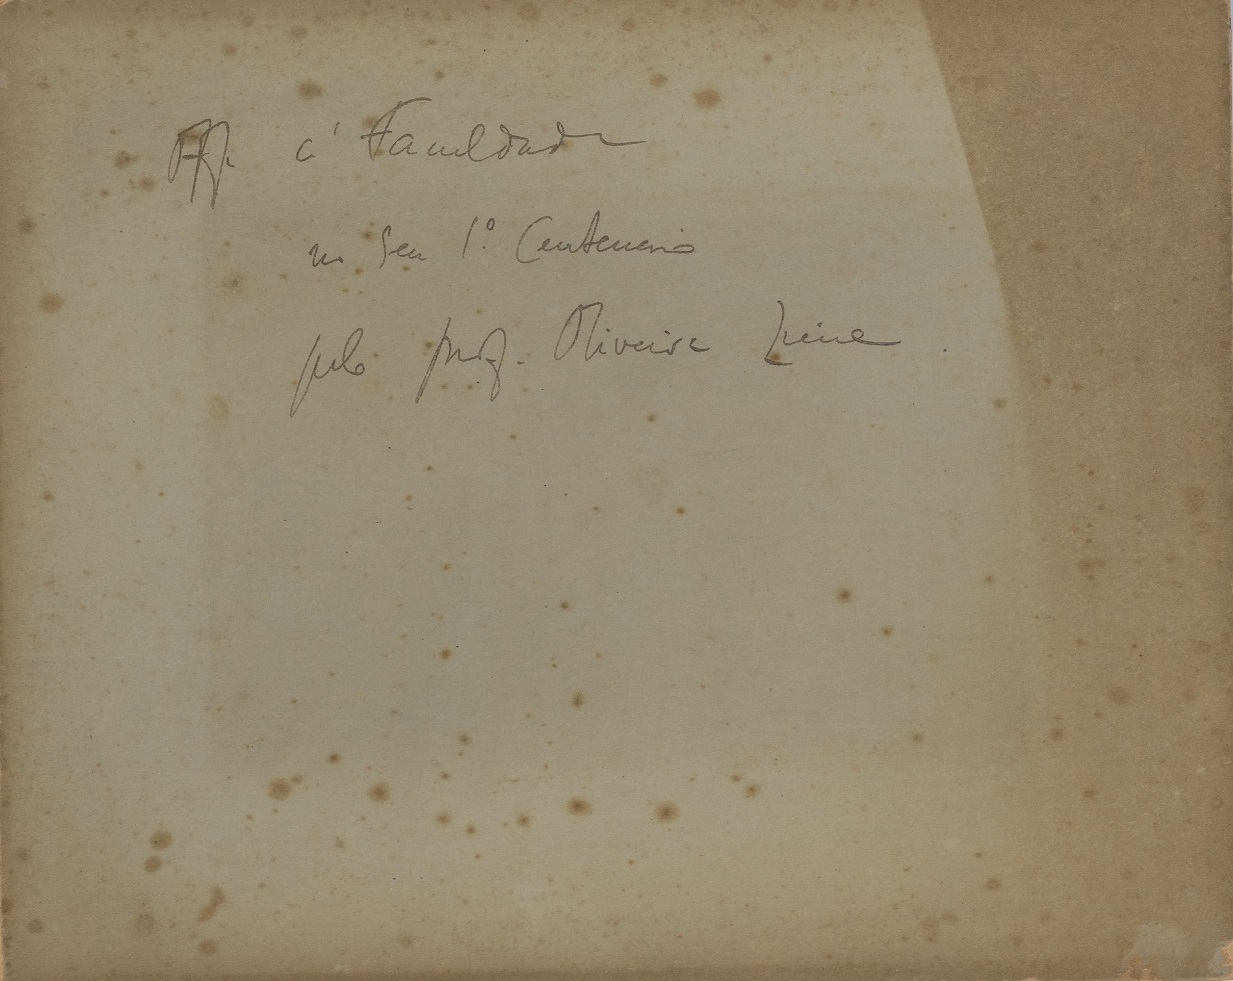 Off. á Faculdade
no seu 1º Centenario
pelo prof. Oliveira Lima.